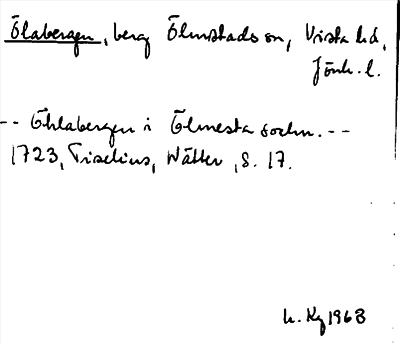 Ölabergen, berg Ölmstads sn, Vista hd,
Jönk. l.
-- Öhlabergen i Ölmesta sochn. --
1723, Tiselius, Wätter, S. 17.
h. Kg 1963